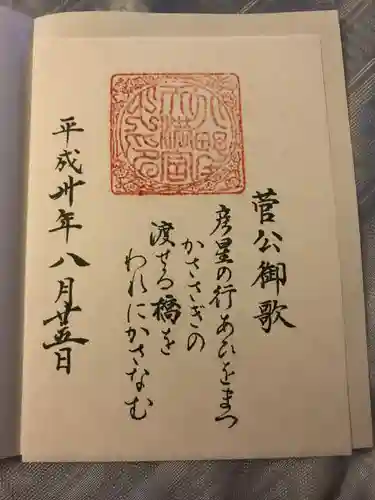 菅公御歌
彦星の行あひをまつ
かささぎの
渡せる橋を
われにかさなむ
平成卅年八月廿五日